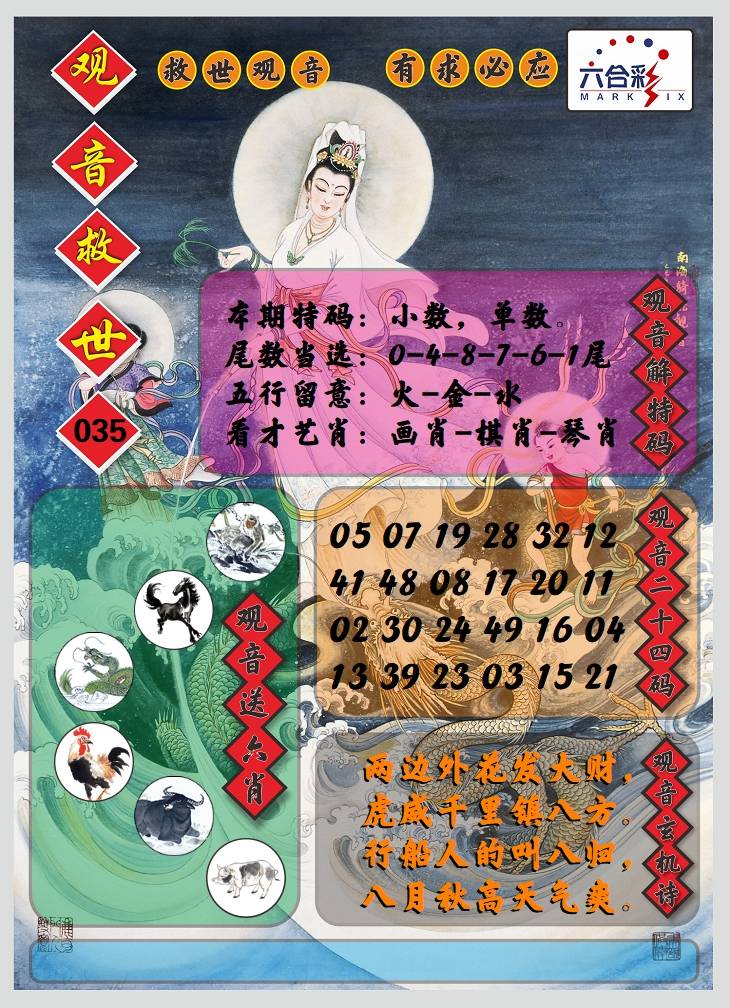 观音救世
035
救世观音 有求必应
六合彩
MARK SIX
本期特码：小数，单数。
尾数当选：0-4-8-7-6-1尾
五行留意：火-金-水
看才艺肖：画肖-棋肖-琴肖
观音解特码
05 07 19 28 32 12
41 48 08 17 20 11
02 30 24 49 16 04
13 39 23 03 15 21
观音二十四码
观音送六肖
两边外花发大财，
虎威千里镇八方。
行船人的叫八归，
八月秋高天气爽。
观音玄机诗